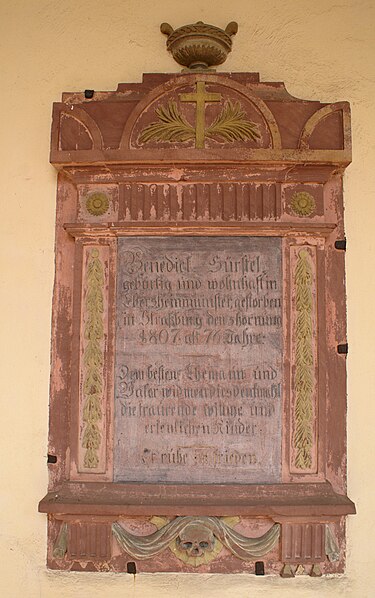 Benedict Sürstel
gebürtig und wohnhaft in
Ebersheimmünster gestorben
in Straßburg den hornung
1807 alt 76 Jahre
Dem besten Ehemann und
Vater widmen dies denkmahl
die trauernde und
Kinder.
Er ruhe im frieden.